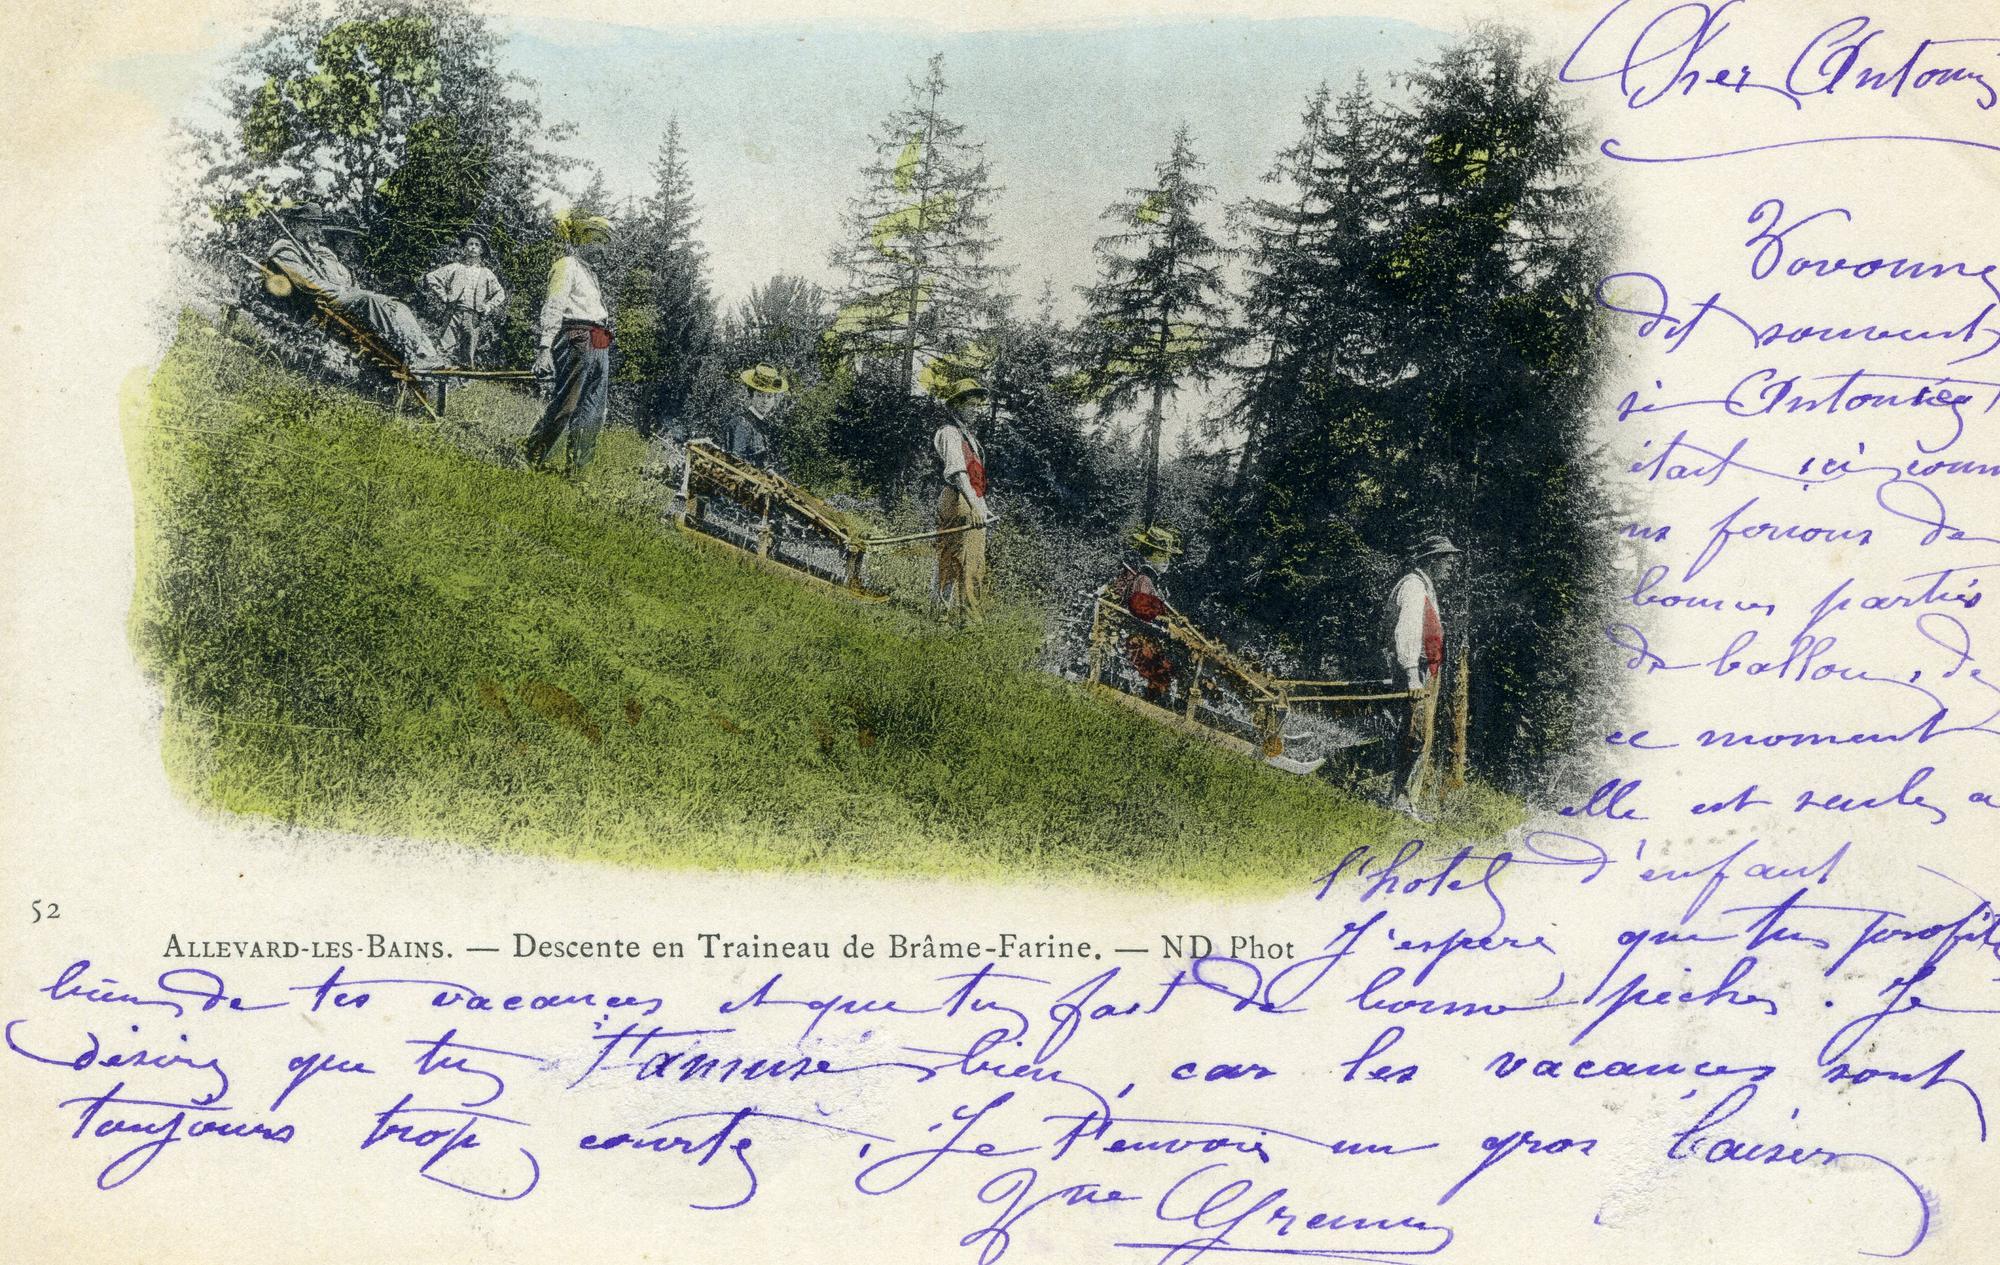 Cher Antoine
Vovonne
dit souvent
si Antoine
était ici comm
ns ferions de
bonnes parties
de ballon, de
ce moment
elle est seule a
l'hotel d'enfant
52
ALLEVARD-LES-BAINS. — Descente en Traineau de Brâme-Farine. — ND Phot
J'espère que tu profite
bien de tes vacances et que tu fait de bonne pêche. Je
désire que tu t'amuse bien, car les vacances sont
toujours trop courte. Je t'envoie un gros baiser